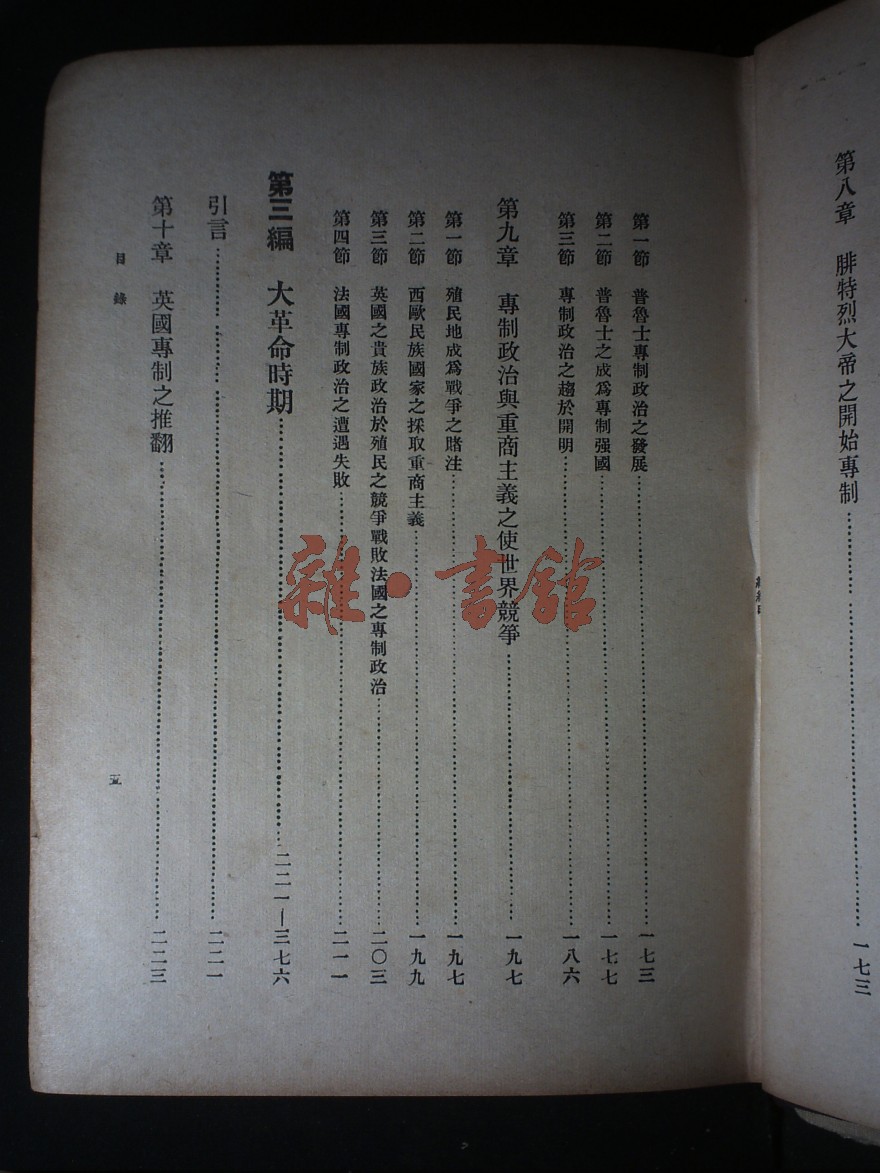 第八章　腓特烈大帝之開始專制……………一七三
第一節　普魯士專制政治之發展……………一七三
第二節　普魯士之成爲專制强國……………一七七
第三節　專制政治之趨於開明……………一八六
第九章　專制政治與重商主義之使世界競爭……………一九七
第一節　殖民地成爲戰爭之賭注……………一九七
第二節　西歐民族國家之採取重商主義……………一九九
第三節　英國之貴族政治於殖民之競爭戰敗法國之專制政治……………二〇三
第四節　法國專制政治之遭遇失敗……………二一一
第三編　大革命時期……………二二一—三七六
引言……………二二一
第十章　英國專制之推翻……………二二三
目錄
五
雜·書館